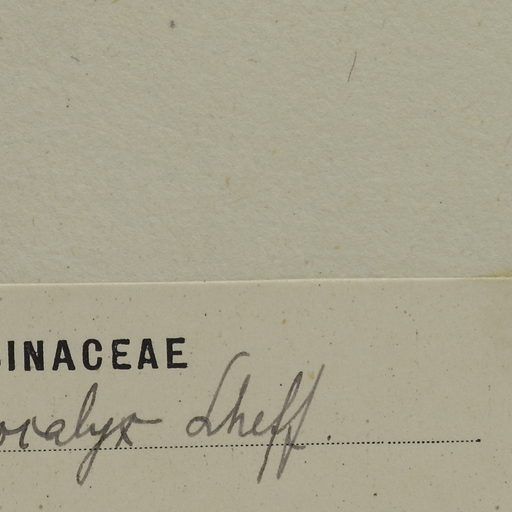 SINACEAE
ocalyx Sheff.